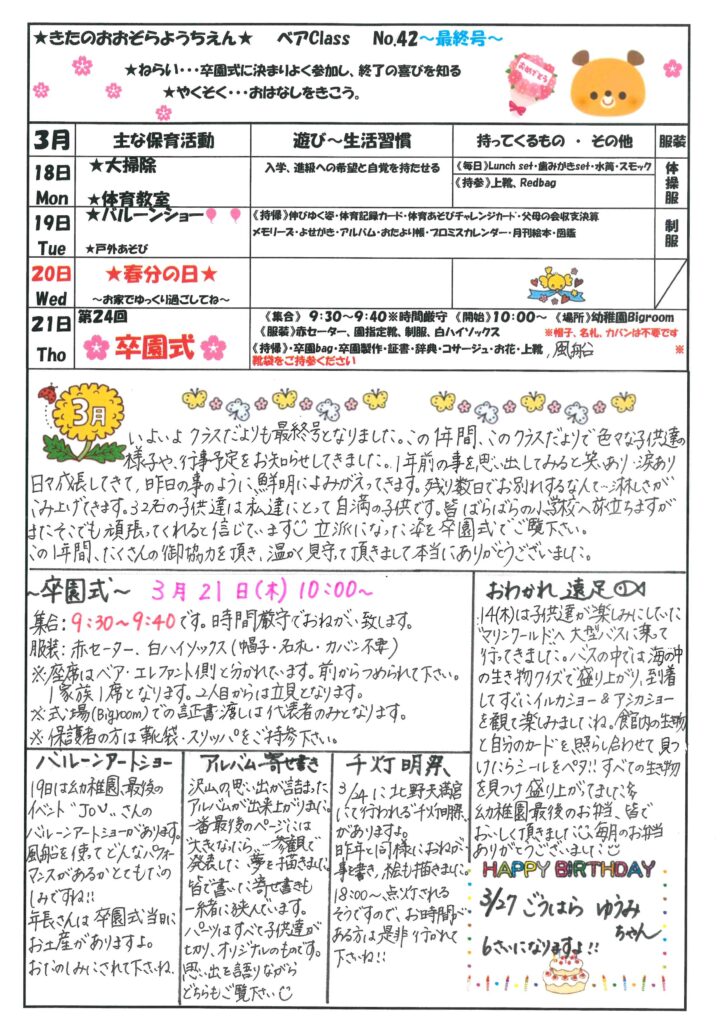 ★きたのおおぞらようちえん★　ベアClass　No.42～最終号～
★ねらい・・・卒園式に決まりよく参加し、終了の喜びを知る
★やくそく・・・おはなしをきこう。
おめでとう
3月　主な保育活動　遊び～生活習慣　持ってくるもの ・ その他　服装
18日 Mon
★大掃除
★体育教室
入学、進級への希望と自覚を持たせる
《毎日》Lunch set・歯みがきset・水筒・スモック
《持参》上靴、Redbag
体操服
19日 Tue
★バルーンショー
★戸外あそび
《持帰》伸びゆく姿・体育記録カード・体育あそびチャレンジカード・父母の会収支決算
メモリーズ・よせがき・アルバム・おたより帳・プロミスカレンダー・月刊絵本・図鑑
制服
20日 Wed
★春分の日★
～お家でゆっくり過ごしてね～
21日 Tho
第24回
卒園式
《集合》 9:30～9:40※時間厳守 《開始》10:00～ 《場所》幼稚園Bigroom
《服装》赤セーター、園指定靴、制服、白ハイソックス　※帽子、名札、カバンは不要です
《持帰》・卒園bag・卒園製作・証書・辞典・コサージュ・お花・上靴 ,風船　※
靴袋をご持参ください
3月
いよいよクラスだよりも最終号となりました。この1年間、このクラスだよりで色々な子供達の
様子や、行事予定をお知らせしてきました。1年前の事を思い出してみると笑いあり・涙あり
日々成長してきて、昨日の事のように鮮明によみがえってきます。残り数日でお別れするなんて…淋しさが
こみ上げてきます。32名の子供達は私達にとって自満の子です。皆ばらばらの小学校へ旅立ちますが
またそこでも頑張ってくれると信じています 立派になった姿を卒園式でご覧下さい。
この1年間、たくさんの御協力を頂き、温かく見守って頂きまして本当にありがとうございました。
～卒園式～ 3月21日(木) 10:00～
集合:9:30～9:40です。時間厳守でおねがい致します。
服装:赤セーター、白ハイソックス(帽子・名札・カバン不要)
※座席はベア・エレファント側と分かれています。前からつめられて下さい。
1家族1席となります。2人目からは立見となります。
※式場(Bigroom)での証書渡しは代表者のみとなります。
※保護者の方は靴袋・スリッパをご持参下さい。
おわかれ遠足
14(木)は子供達が楽しみにしていた
マリンワールドへ大型バスに乗って
行ってきました。バスの中では海の中
の生き物クイズで盛り上がり、到着
してすぐにイルカショー&アシカショー
を観て楽しみましたね。館内の生物
と自分のカードを、照らし合わせて見つ
けたらシールをペタ!!すべての生き物
を見つけ盛り上がってました
幼稚園最後のお弁当、皆で
おいしく頂きました 毎月のお弁当
ありがとうございました
バルーンアートショー
19日は幼稚園、最後の
イベント"JOU"さんの
バルーンアートショーがあります。
風船を使ってどんなパフォー
マンスがあるかとてもたの
しみですね!!
年長さんは卒園式当日に
お土産がありますよ。
おたのしみにされて下さいね、
アルバム・寄せ書き
沢山の思い出が詰まった
アルバムが出来上がりました。
一番最後のページには
大きくなったら…参観で
発表した夢を描きました。
皆で書いた寄せ書きも
一緒に挟んでいます。
パーツはすべて子供達が
切り、オリジナルのものです。
思い出を語りながら
どちらもご覧下さい
千灯明祭
3/24に北野天満宮
にて行われる千灯明祭
がありますよ。
昨年と同様におねがい
事を書き、絵も描きました。
18:00～、点灯される
そうですので、お時間が
ある方は是非行かれて
下さいね!!
HAPPY BiRTHDAY
3/27 ごうはら ゆうみ
ちゃん
6さいになりますよ!!